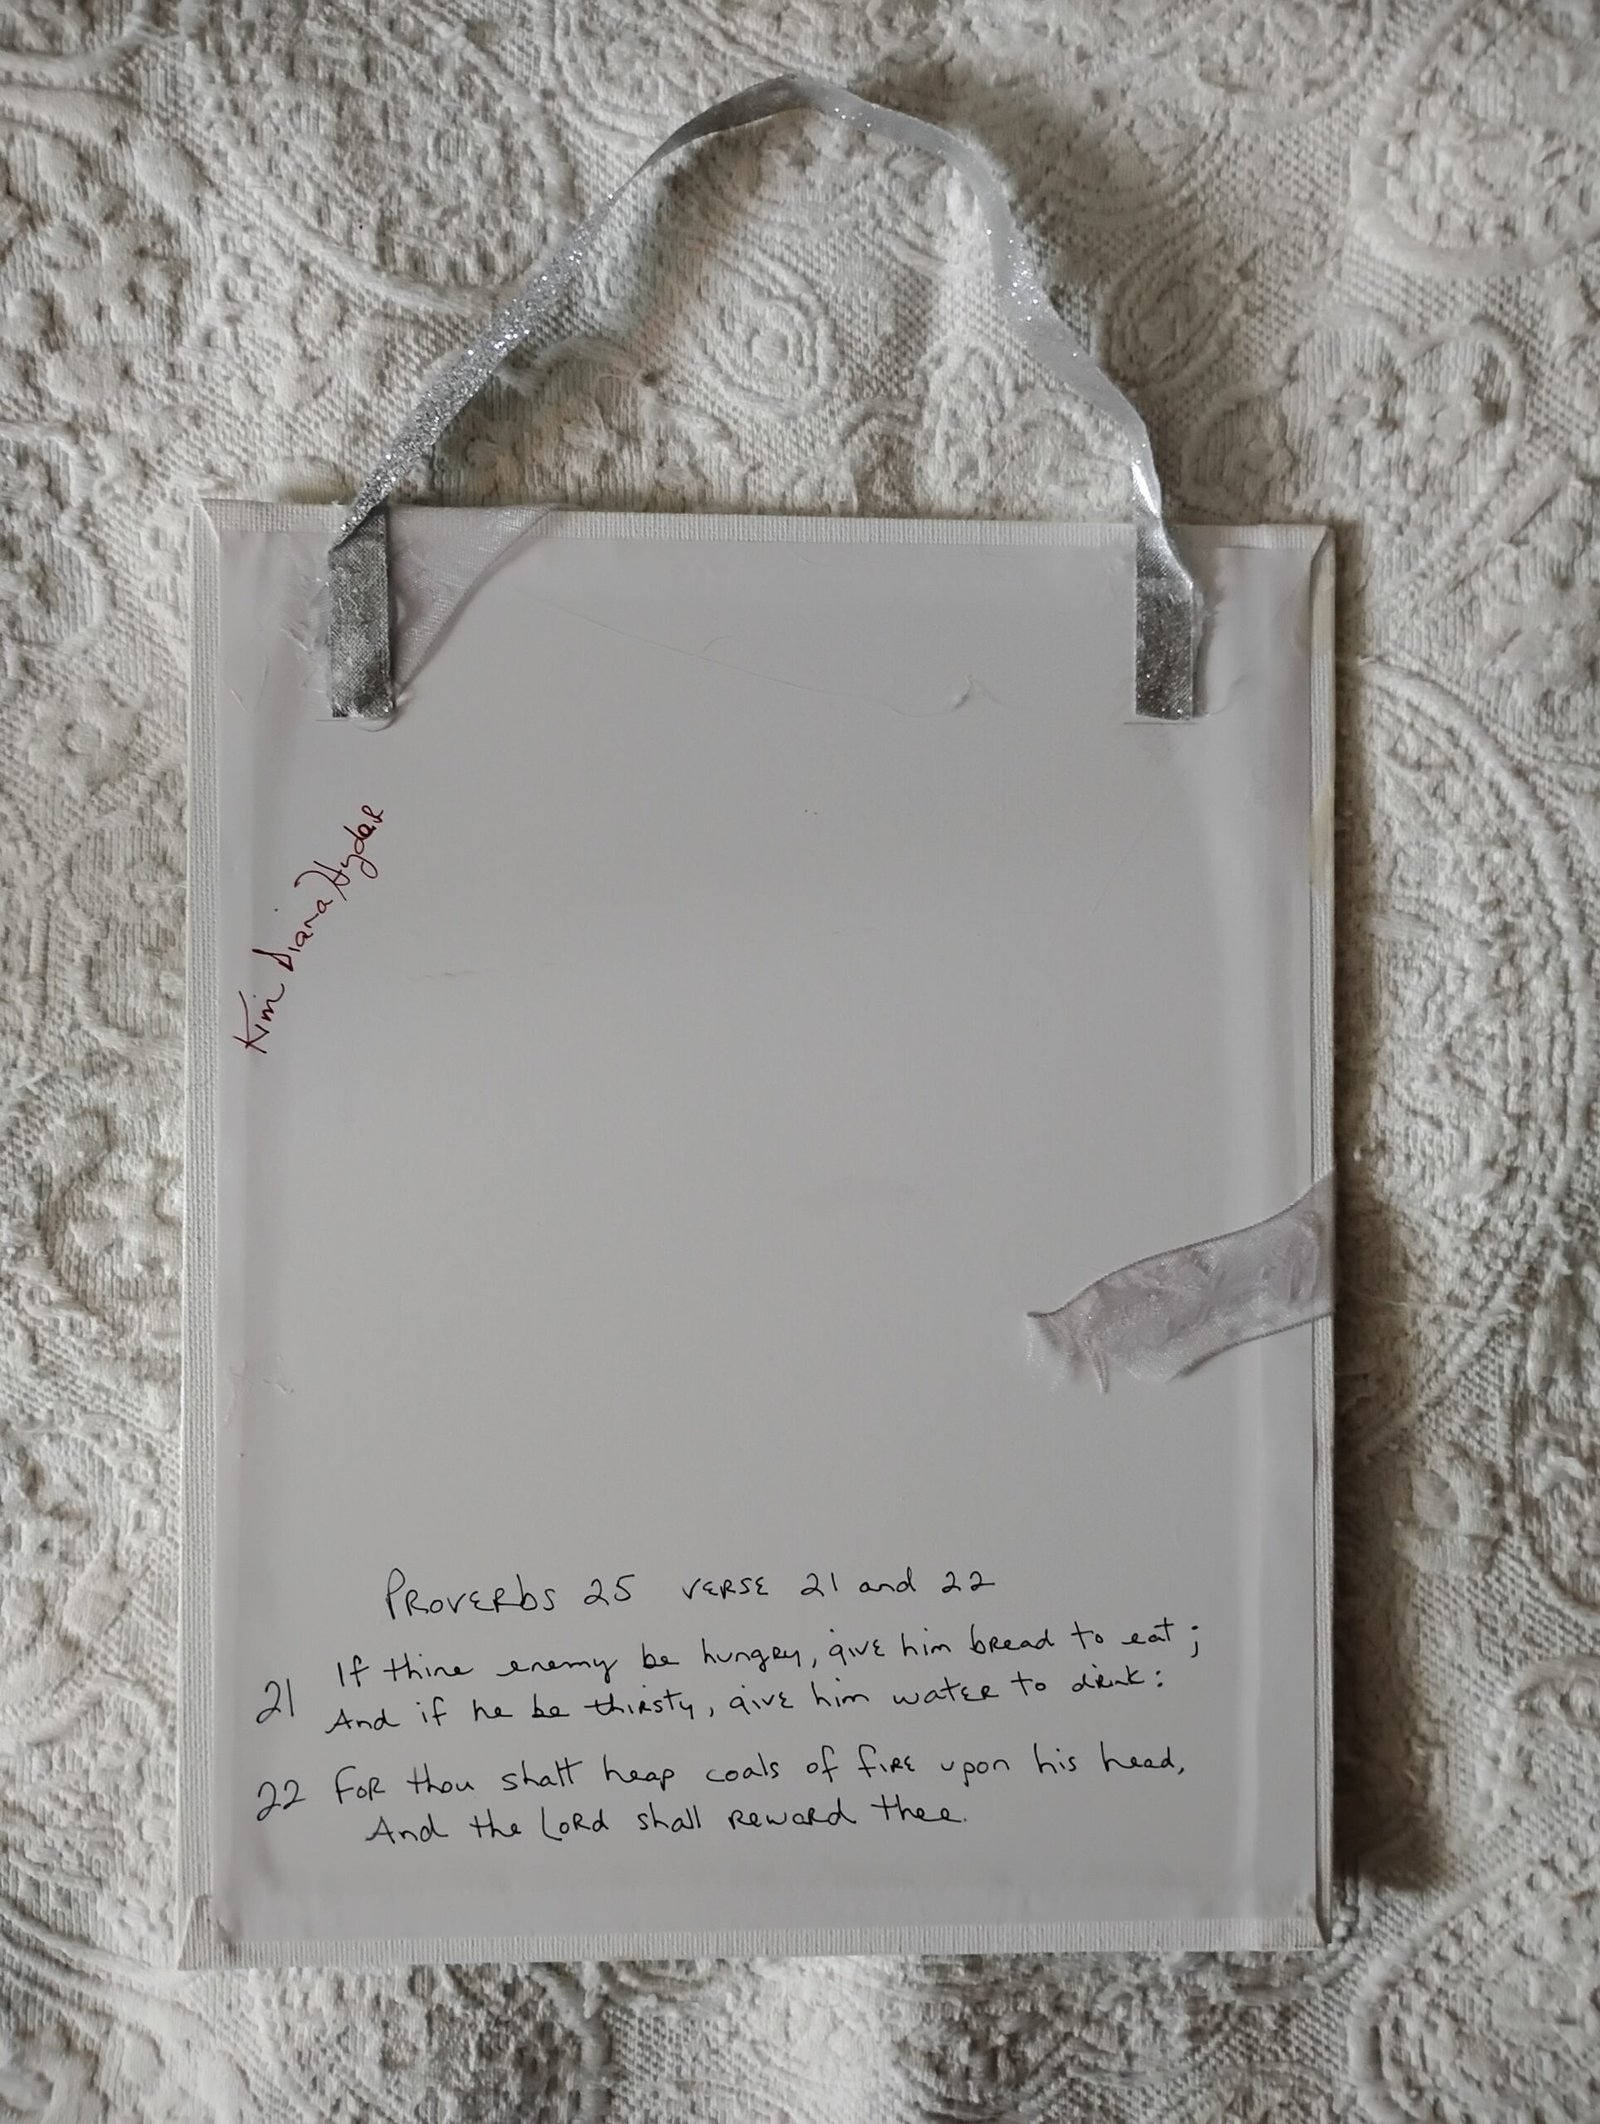 Kim Diana Hydar
PROVERbS 25 VERSE 21 and 22
21 If thine enemy be hungry, give him bread to eat;
And if he be thirsty, give him water to drink:
22 For thou shalt heap coals of fire upon his head,
And the Lord shall reward thee.